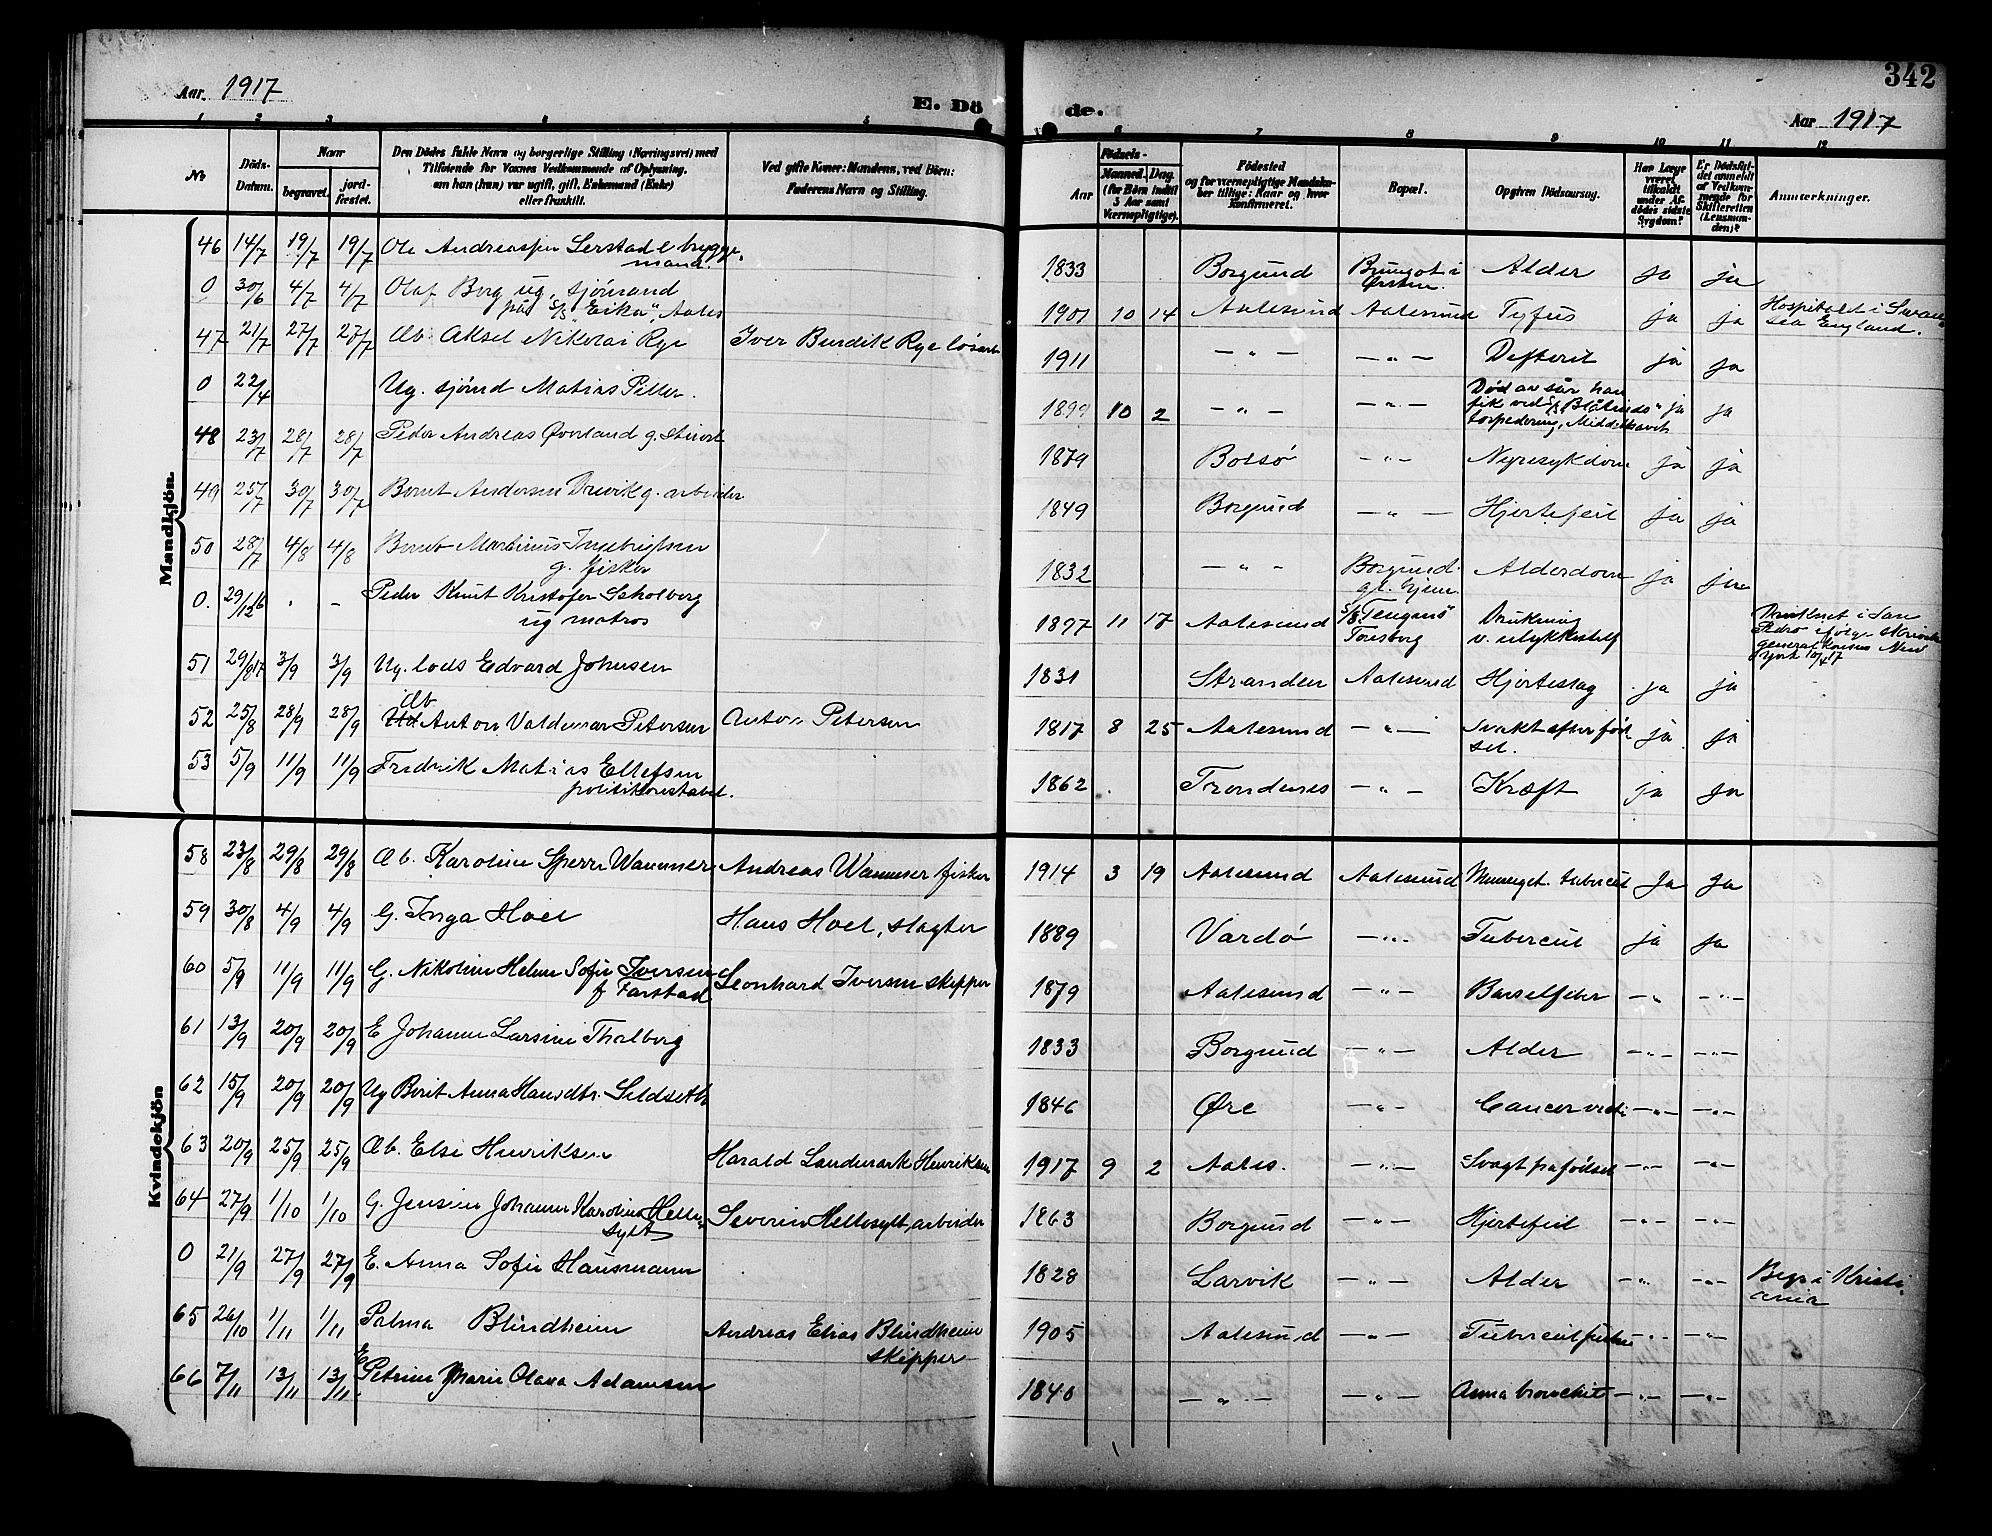 342
Aar 1917
E. Dö
de.
Aar 1917
1 2 3 4 5 6 7 8 9 10 11 12
Nr.
Döds-Datum.
Naar
begravet.
jordfæstet.
Den Dödes fulde Navn og borgerlige Stilling (Næringsvei) med
Tilföiende for Voxnes Vedkommende af Oplysning,
om han (hun) var ugift, gift, Enkemand (Enke)
eller fraskilt.
Ved gifte Koner: Mandens, ved Börn:
Faderens Navn og Stilling.
Födsels-
Aar
Maaned. Dag.
(for Börn indtil
5 Aar samt
Værnepligtige).
Födested
og for værnepligtige Mandskaber
tillige: Naar og hvor
konfirmeret.
Bopæl.
Opgiven Dödsaarsag.
Har Læge været tilkaldt under Afdödes sidste Sygdom?
Er Dödsfaldet anmeldt af Vedkommende for Skifteretten (Lensmanden)?
Anmærkninger.
Mandkjön.
46 14/7 19/7 19/7 Ole Andreassen Lerstad e brygge-
mand. 1833 Borgund Alder ja ja
0 30/6 4/7 4/7 Olaf Borg ug. sjömand
på S/S "Erika", Aales 1901 10 14 Aalesund Aalesund Tyfus ja ja Hospitalet i Swan-
sea England.
47 21/7 27/7 27/7 Ab. Aksel Nikolai Rye Iver Burdik Rye løsarb 1911 — " — — " — Defterit ja ja
0 22/4 Ug. sjömd Matias Petter. 1899 10 2 — " — — " — Död av sår han
fik ved S/S "Blåtinds" ja ja
torpedering, Middelhavet
48 23/7 28/7 28/7 Peder Andreas Øverland g. 1879 Bolsø — " — Nyresykdom ja ja
49 25/7 30/7 30/7 Bernt Andersen g. arbeider 1849 Borgund — " — Hjertefeil ja ja
50 28/7 4/8 4/8 Bernt Martinus Ingebrigtsen
g. fisker 1832 — " — Borgund
gl. hjem. Alderdom ja ja
0. 29/12 16 - - Peder Knut Kristofer Scholberg
ug matros 1897 11 17 Aalesund Tønsberg Drukning
v. ulykkestilf Druknet i San
Pedro ifølge skrivelse
general Konsul New
York 10/4 17
51 29/8 17 3/9 3/9 Ug. lods Edvard Johnsen 1831 Stranden Aalesund Hjerteslag ja ja
52 25/8 28/9 28/9 Ab Anton Valdemar Petersen Anton Petersen 1817 8 25 Aalesund — " — Svakt efter föd-
sel. ja ja
53 5/9 11/9 11/9 Fredrik Matias Ellefsen
politikonstabel. 1862 Trondenes — " — Kræft ja ja
Kvindekjön
58 23/8 29/8 29/8 Ab. Karoline Sperre Wammer Andreas Wammer fisker 1914 3 19 Aalesund Aalesund tubercul ja ja
59 30/8 4/9 4/9 G. Inga Hoel Hans Hoel, slagter 1889 Vardö — " — Tubercul ja ja
60 5/9 11/9 11/9 G. Nikoline Helene Sofie Iversen
f Farstad Leonhard Iversen skipper 1879 Aalesund — " — Barselfeber — " — — " —
61 13/9 20/9 20/9 E Johanne Larsine Thalberg 1833 Borgund — " — Alder — " — — " —
62 15/9 20/9 20/9 Ug Berit Anna Hansdtr. Seldseth 1846 Øre — " — Cancer — " — — " —
63 20/9 25/9 25/9 Ab. Else Henriksen Harald Landmark Henriksen 1917 9 2 Aales. — " — Svagt på födsel — " — — " —
64 27/9 1/10 1/10 G. Jensine Johanne Karoline Helle-
sylt Severin Hellesylt, arbeider 1863 Borgund — " — Hjertefeil — " — — " —
0 21/9 27/9 27/9 E. Anna Sofie Hansmann 1828 Larvik — " — Alder — " — — " — Begr i Kristi-
ania
65 26/10 1/11 1/11 Palma Blindheim Andreas Elias Blindheim
skipper 1905 Aalesund — " — — " — — " —
66 7/11 13/11 13/11 E Petrine Marie Olava Adamsen 1840 — " — — " — bronchit — " — — " —